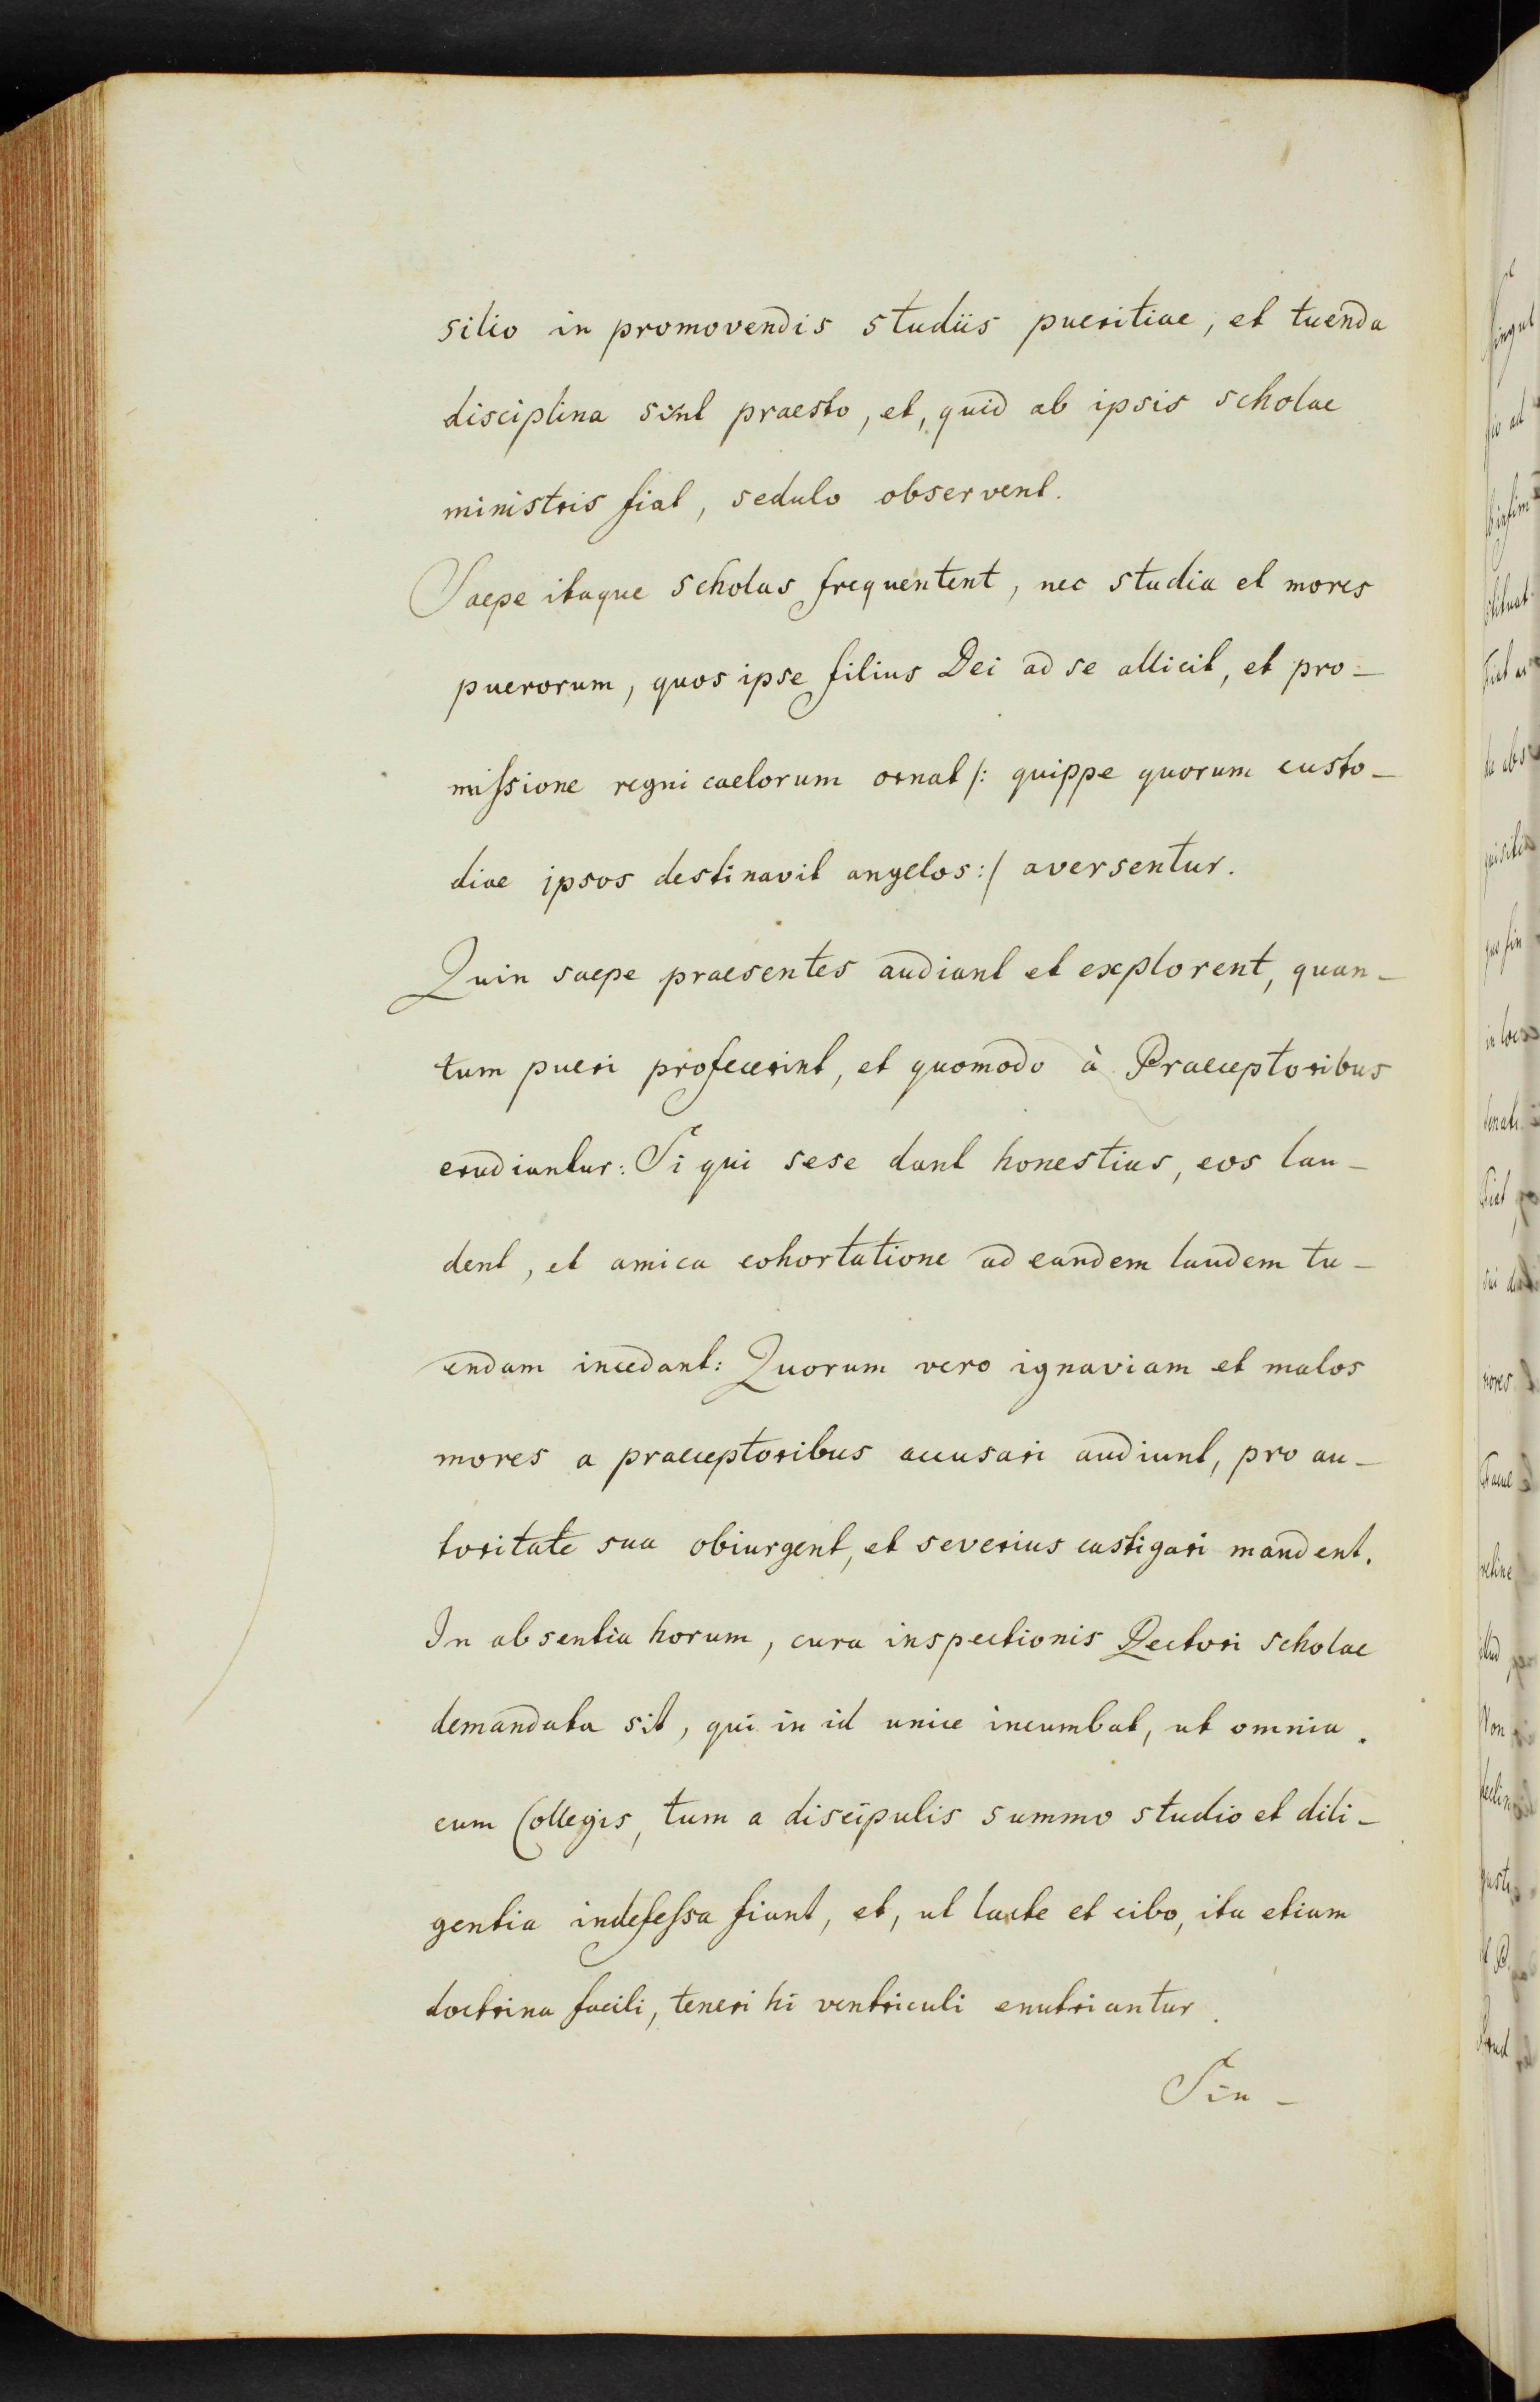 silio in promovendis studiis pueritiae, et tuenda
disciplina sint praesto, et, quid ab ipsis scholae
ministris fiat, sedulo observent.
Saepe itaque scholas frequentent, nec studia et mores
puerorum, quos ipse filius Dei ad se allicit, et pro-
miſsione regni caelorum ornat /: quippe quorum custo-
diae ipsos destinavit angelos :/ aversentur.
Quin saepe praesentes audiant et explorent, quan-
tum pueri profecerint, et quomodo à Praeceptoribus
erudiantur: Si qui sese dant honestius, eos lau-
dent, et amica cohortatione ad eandem laudem tu-
endam incedant: Quorum vero ignaviam et malos
mores a praeceptoribus accusari audiunt, pro au-
toritate sua obiurgent, et severius castigari mandent.
In absentia horum, cura inspectionis Rectori scholae
demandata sit, qui in id unice incumbat, ut omnia.
cum Collegis, tum a discipulis summo studio et dili-
gentia indefeſsa fiant, et, ut lacte et cibo, ita etiam
doctrina facili, teneri hi ventriculi enutriantur.
Sin-